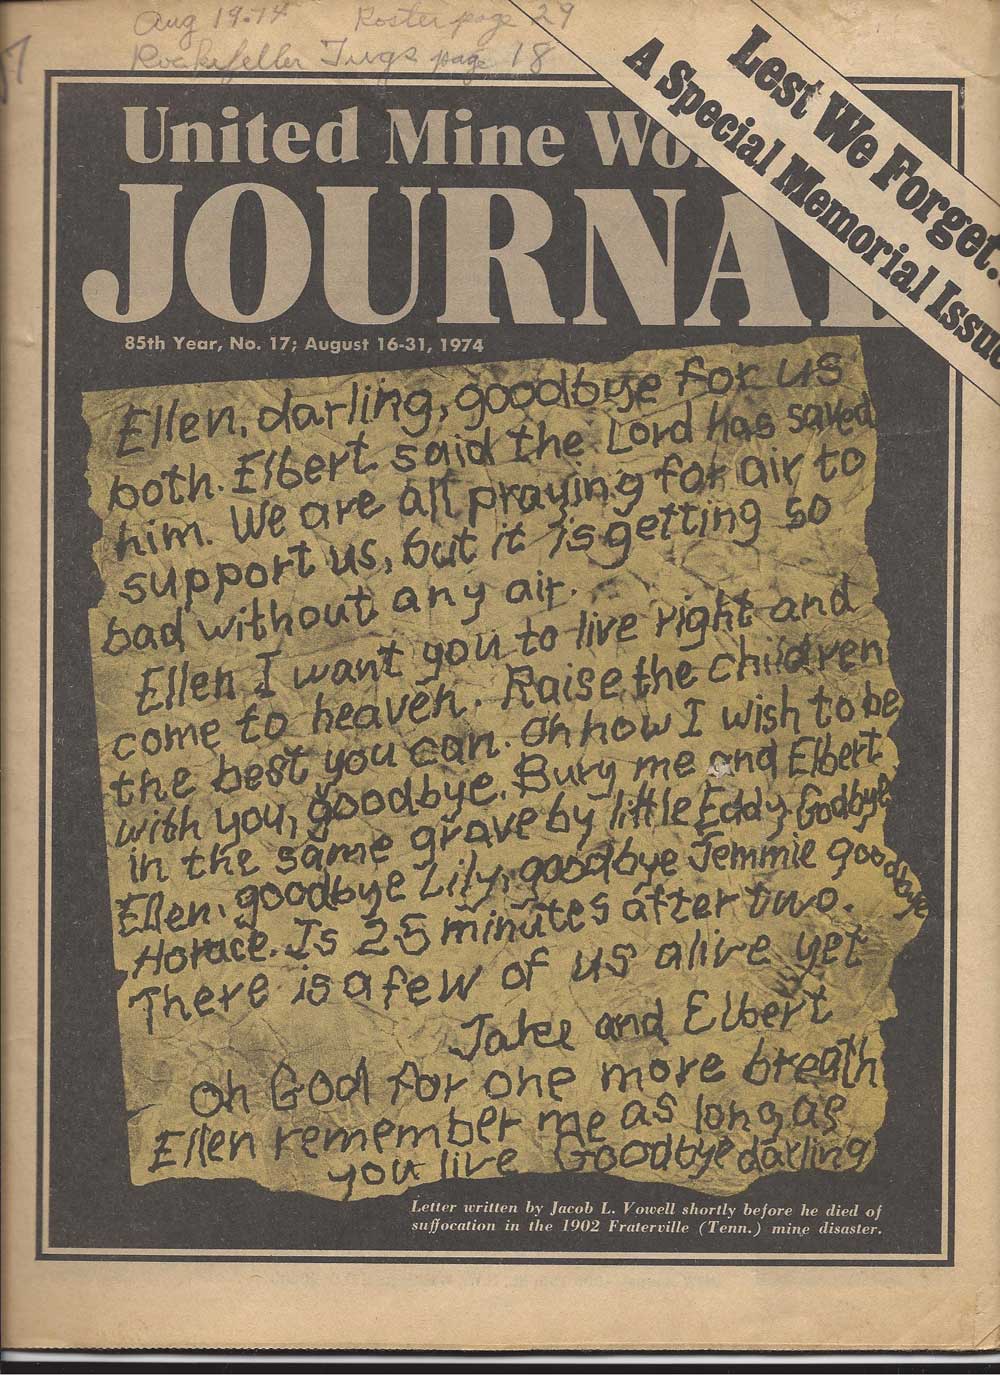 Aug 19.74 Roster page 29
Rockefeller Tugs page 18
Lest We Forget..
A Special Memorial Issue
United Mine Wo
JOURNAL
85th Year, No. 17; August 16-31, 1974
Ellen, darling, goodbye for us
both. Elbert said the Lord has saved
him. We are all praying for air to
support us, but it is getting so
bad without any air.
Ellen I want you to live right and
come to heaven. Raise the children
the best you can. Oh how I wish to be
with you, goodbye. Bury me and Elbert
in the same grave by little Eddy. Godbye
Ellen, goodbye Lily, goodbye Jemmie goodbye
Horace. Is 25 minutes after two.
There is a few of us alive yet
Jake and Elbert
Oh God for one more breath
Ellen remember me as long as
you live Goodbye darling
Letter written by Jacob L. Vowell shortly before he died of
suffocation in the 1902 Fraterville (Tenn.) mine disaster.